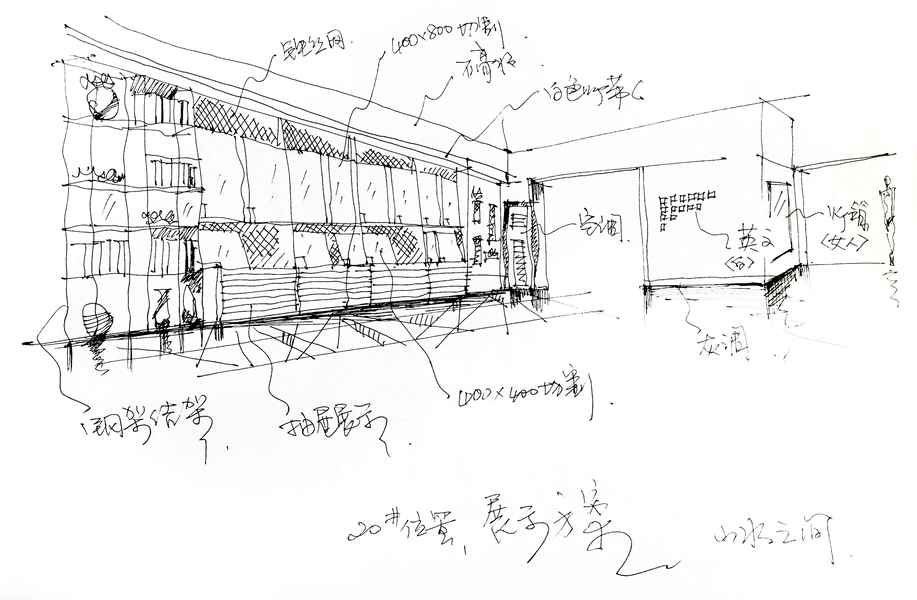 铁丝网.
400×800 切割
石膏板.
白色
空调.
英文
<白>
水銷
<女人>
灰调
400×400切割.
钢架结构.
抽屉展示.
20#位置, 展示方案
山水之间.